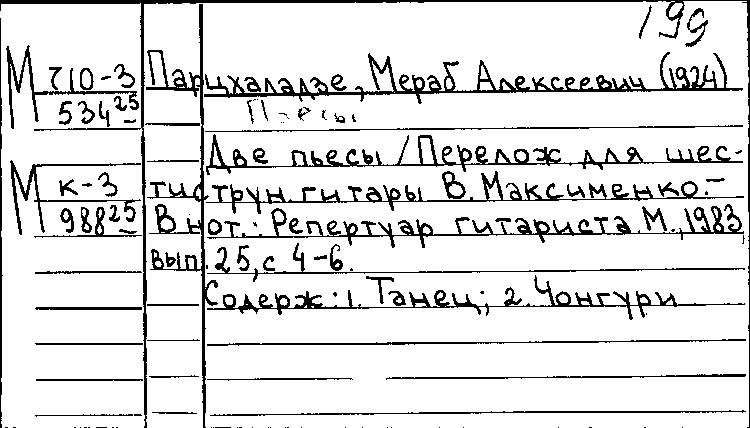 199
М 710-3 Парцхаладзе, Мераб Алексеевич (1924)
534 25 Пьесы
Две пьесы / Перелож. для шес-
М К-3 тиструн. гитары В. Максименко. –
988 25 В нот.: Репертуар гитариста. М., 1983
вып. 25, с. 4-6.
Содерж: 1. Танец; 2. Чонгури